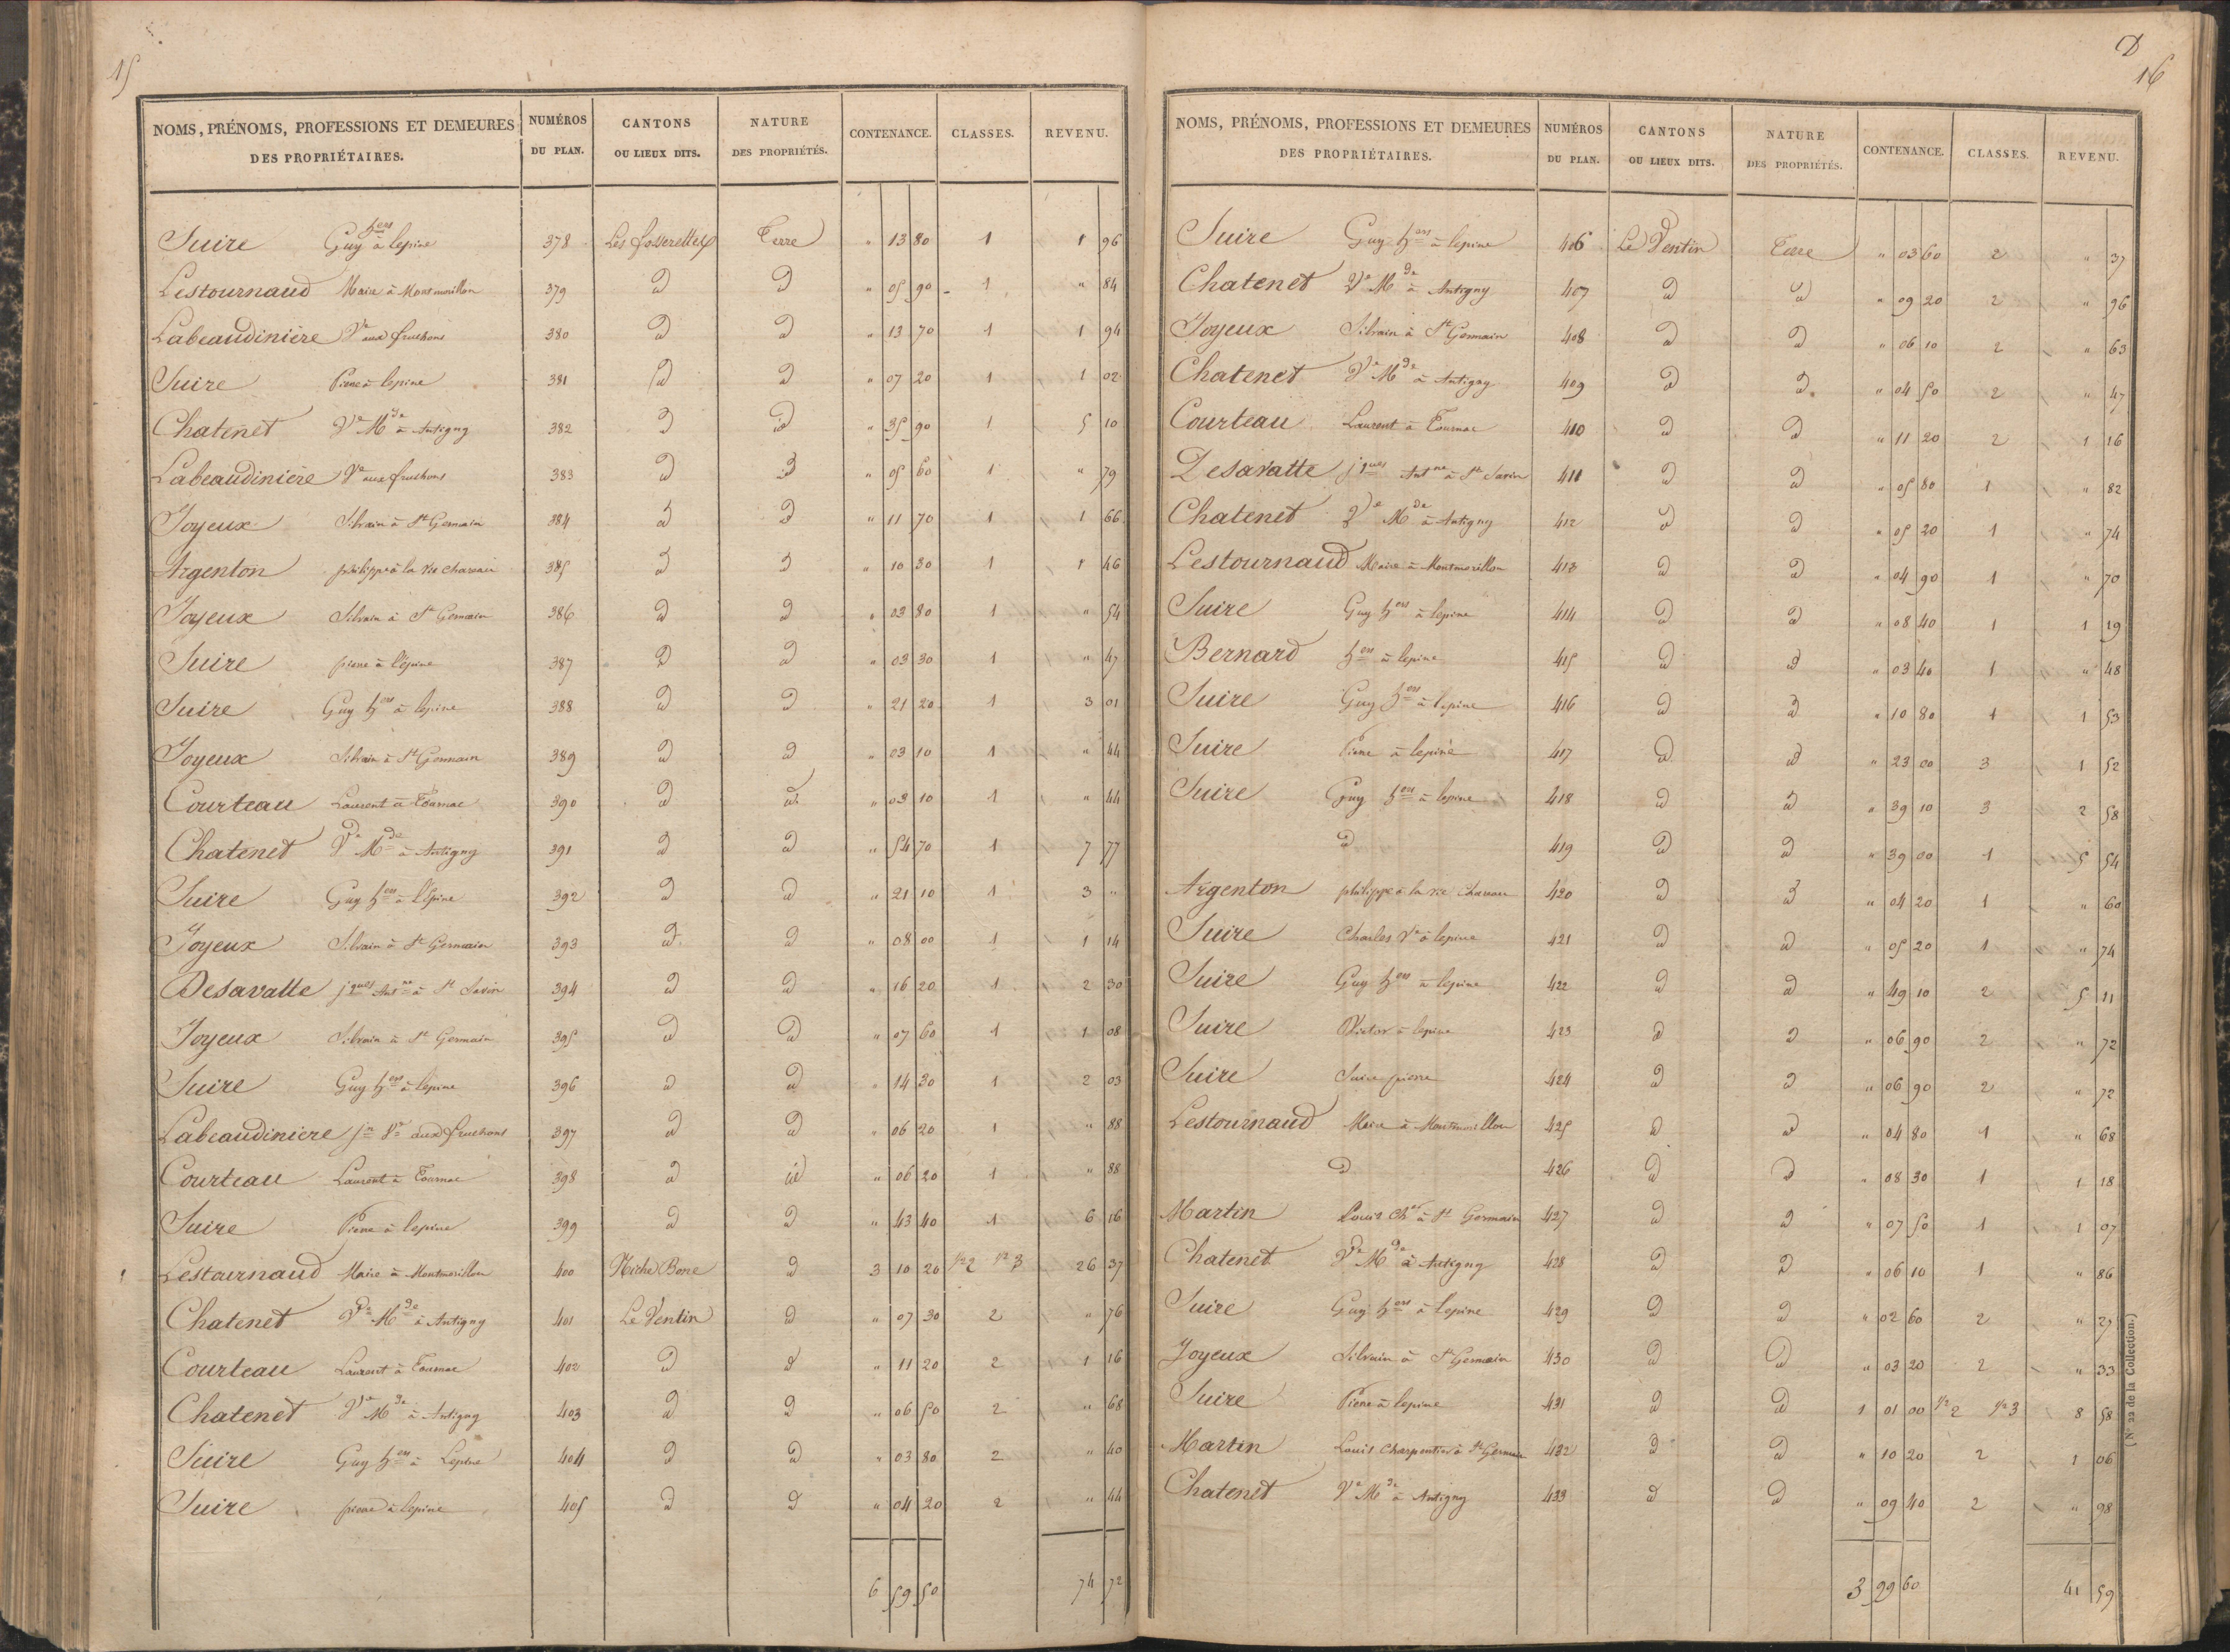 15
NOMS, PRÉNOMS, PROFESSIONS ET DEMEURES DES PROPRIÉTAIRES. NUMÉROS DU PLAN. CANTONS OU LIEUX DITS. NATURE DES PROPRIÉTÉS. CONTENANCE. CLASSES. REVENU.
Suire Guy hers à lepine 378 Les fosserettes Terre " 13 80 1 1 96
Lestournaud Maire à Montmorillon 379 d d " 05 90 1 " 84
Labeaudinière Ve aux fruchons 380 d d " 13 70 1 1 94
Suire Pierre à lepine 381 d d " 07 20 1 1 02
Chatenet Ve Mde à Antigny 382 d d " 35 90 1 5 10
Labeaudinière Ve aux fruchons 383 d d " 05 60 1 " 79
Joyeux Silvain à St Germain 384 d d " 11 70 1 1 66
Argenton philippe à la 385 d d " 10 30 1 1 46
Joyeux Silvain à St Germain 386 d d " 03 80 1 " 54
Suire pierre à l'épine 387 d d " 03 30 1 " 47
Suire Guy hers à lepine 388 d d " 21 20 1 3 01
Joyeux Silvain à St Germain 389 d d " 03 10 1 " 44
Courteau Laurent à Tournac 390 d d " 03 10 1 " 44
Chatenet Ve Mde à Antigny 391 d d " 54 70 1 7 77
Suire Guy hers à l'Epine 392 d d " 21 10 1 3 "
Joyeux Silvain à St Germain 393 d d " 08 00 1 1 14
Desavatte jques Antne à St Savin 394 d d " 16 20 1 2 30
Joyeux Silvain à St Germain 395 d d " 07 60 1 1 08
Suire Guy hers à lepine 396 d d " 14 30 1 2 03
Labeaudiniere jn Ve aux fruchons 397 d d " 06 20 1 " 88
Courteau Laurent à Tournac 398 d id " 06 20 1 " 88
Suire Pierre à lepine 399 d d " 43 40 1 6 16
Lestournaud Maire à Montmorillon 400 Bore d 3 10 20 1/2 2 1/2 3 26 37
Chatenet Ve Mde à Antigny 401 Le Ventin d " 07 30 2 " 76
Courteau Laurent à Tournac 402 d d " 11 20 2 1 16
Chatenet Ve Mde à Antigny 403 d d " 06 50 2 " 68
Suire Guy hers à Lepine 404 d d " 03 80 2 " 40
Suire pierre à lepine 405 d d " 04 20 2 " 44
6 59 50 74 72
D
16
NOMS, PRÉNOMS, PROFESSIONS ET DEMEURES DES PROPRIÉTAIRES. NUMÉROS DU PLAN. CANTONS OU LIEUX DITS. NATURE DES PROPRIÉTÉS. CONTENANCE. CLASSES. REVENU.
Suire Guy hers à lepine 406 Le Ventin Terre " 03 60 2 " 37
Chatenet Ve Mde à Antigny 407 d d " 09 20 2 " 96
Joyeux Silvain à St Germain 408 d d " 06 10 2 " 63
Chatenet Ve Mde à Antigny 409 d d " 04 50 2 " 47
Courteau Laurent à Tournac 410 d d " 11 20 2 1 16
Desavatte jques Antne à St Savin 411 d d " 05 80 1 " 82
Chatenet Ve Mde à Antigny 412 d d " 05 20 1 " 74
Lestournaud Maire à Montmorillon 413 d d " 04 90 1 " 70
Suire Guy hers à lepine 414 d d " 08 40 1 1 19
Bernard hers à lepine 415 d d " 03 40 1 " 48
Suire Guy hers à lepine 416 d d " 10 80 1 1 53
Suire Pierre à lepine 417 d d " 23 00 3 1 52
Suire Guy hers à lepine 418 d d " 39 10 3 2 58
d 419 d d " 39 00 1 5 54
Argenton philippe à la 420 d d " 04 20 1 " 60
Suire Charles Ve à lepine 421 d d " 05 20 1 " 74
Suire Guy hers à lepine 422 d d " 49 10 2 5 11
Suire Victor à lepine 423 d d " 06 90 2 " 72
Suire Suire pierre 424 d d " 06 90 2 " 72
Lestournaud Maire à Montmorillon 425 d d " 04 80 1 " 68
d 426 d d " 08 30 1 1 18
Martin Louis à St Germain 427 d d " 07 50 1 1 07
Chatenet Ve Mde à Antigny 428 d d " 06 10 1 " 86
Suire Guy hers à lepine 429 d d " 02 60 2 " 27
Joyeux Silvain à St Germain 430 d d " 03 20 2 " 33
Suire Pierre à lepine 431 d d 1 01 00 1/2 2 1/2 3 8 58
Martin Louis Charpentier à St Germain 432 d d " 10 20 2 1 06
Chatenet Ve Mde à Antigny 433 d d " 09 40 2 " 98
3 99 60 41 59
(N° 22 de la Collection.)